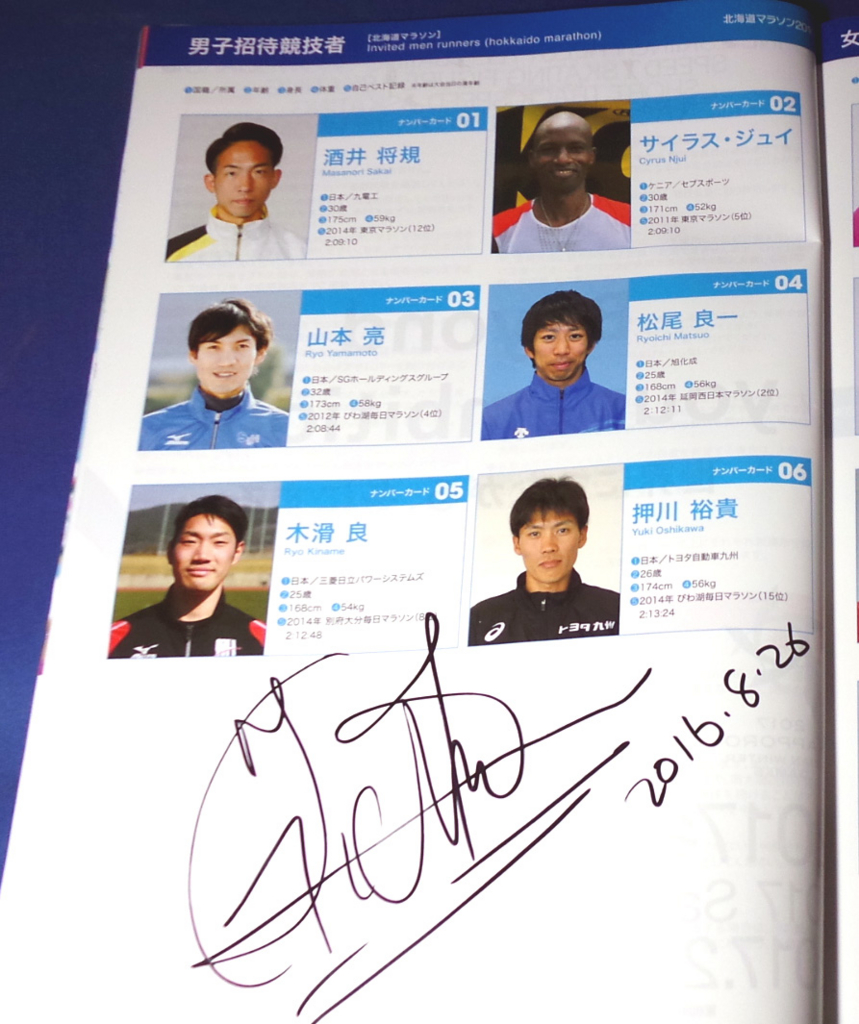 男子招待競技者
【北海道マラソン】
Invited men runners (hokkaido marathon)
北海道マラソン20
女
❶国籍／所属 ❷年齢 ❸身長 ❹体重 ❺自己ベスト記録
ナンバーカード 01
酒井 将規
Masanori Sakai
❶日本／九電工
❷30歳
❸175cm ❹59kg
❺2014年 東京マラソン(12位)
2:09:10
ナンバーカード 02
サイラス・ジュイ
Cyrus Njui
❶ケニア／セブスポーツ
❷30歳
❸171cm ❹52kg
❺2011年 東京マラソン(5位)
2:09:10
ナンバーカード 03
山本 亮
Ryo Yamamoto
❶日本／SGホールディングスグループ
❷32歳
❸173cm ❹58kg
❺2012年 びわ湖毎日マラソン(4位)
2:08:44
ナンバーカード 04
松尾 良一
Ryoichi Matsuo
❶日本／旭化成
❷25歳
❸168cm ❹56kg
❺2014年 延岡西日本マラソン(2位)
2:12:11
ナンバーカード 05
木滑 良
Ryo Kiname
❶日本／三菱日立パワーシステムズ
❷25歳
❸168cm ❹54kg
❺2014年 別府大分毎日マラソン(8
2:12:48
ナンバーカード 06
押川 裕貴
Yuki Oshikawa
❶日本／トヨタ自動車九州
❷26歳
❸174cm ❹56kg
❺2014年 びわ湖毎日マラソン(15位)
2:13:24
トヨタ九州
2016.8.26